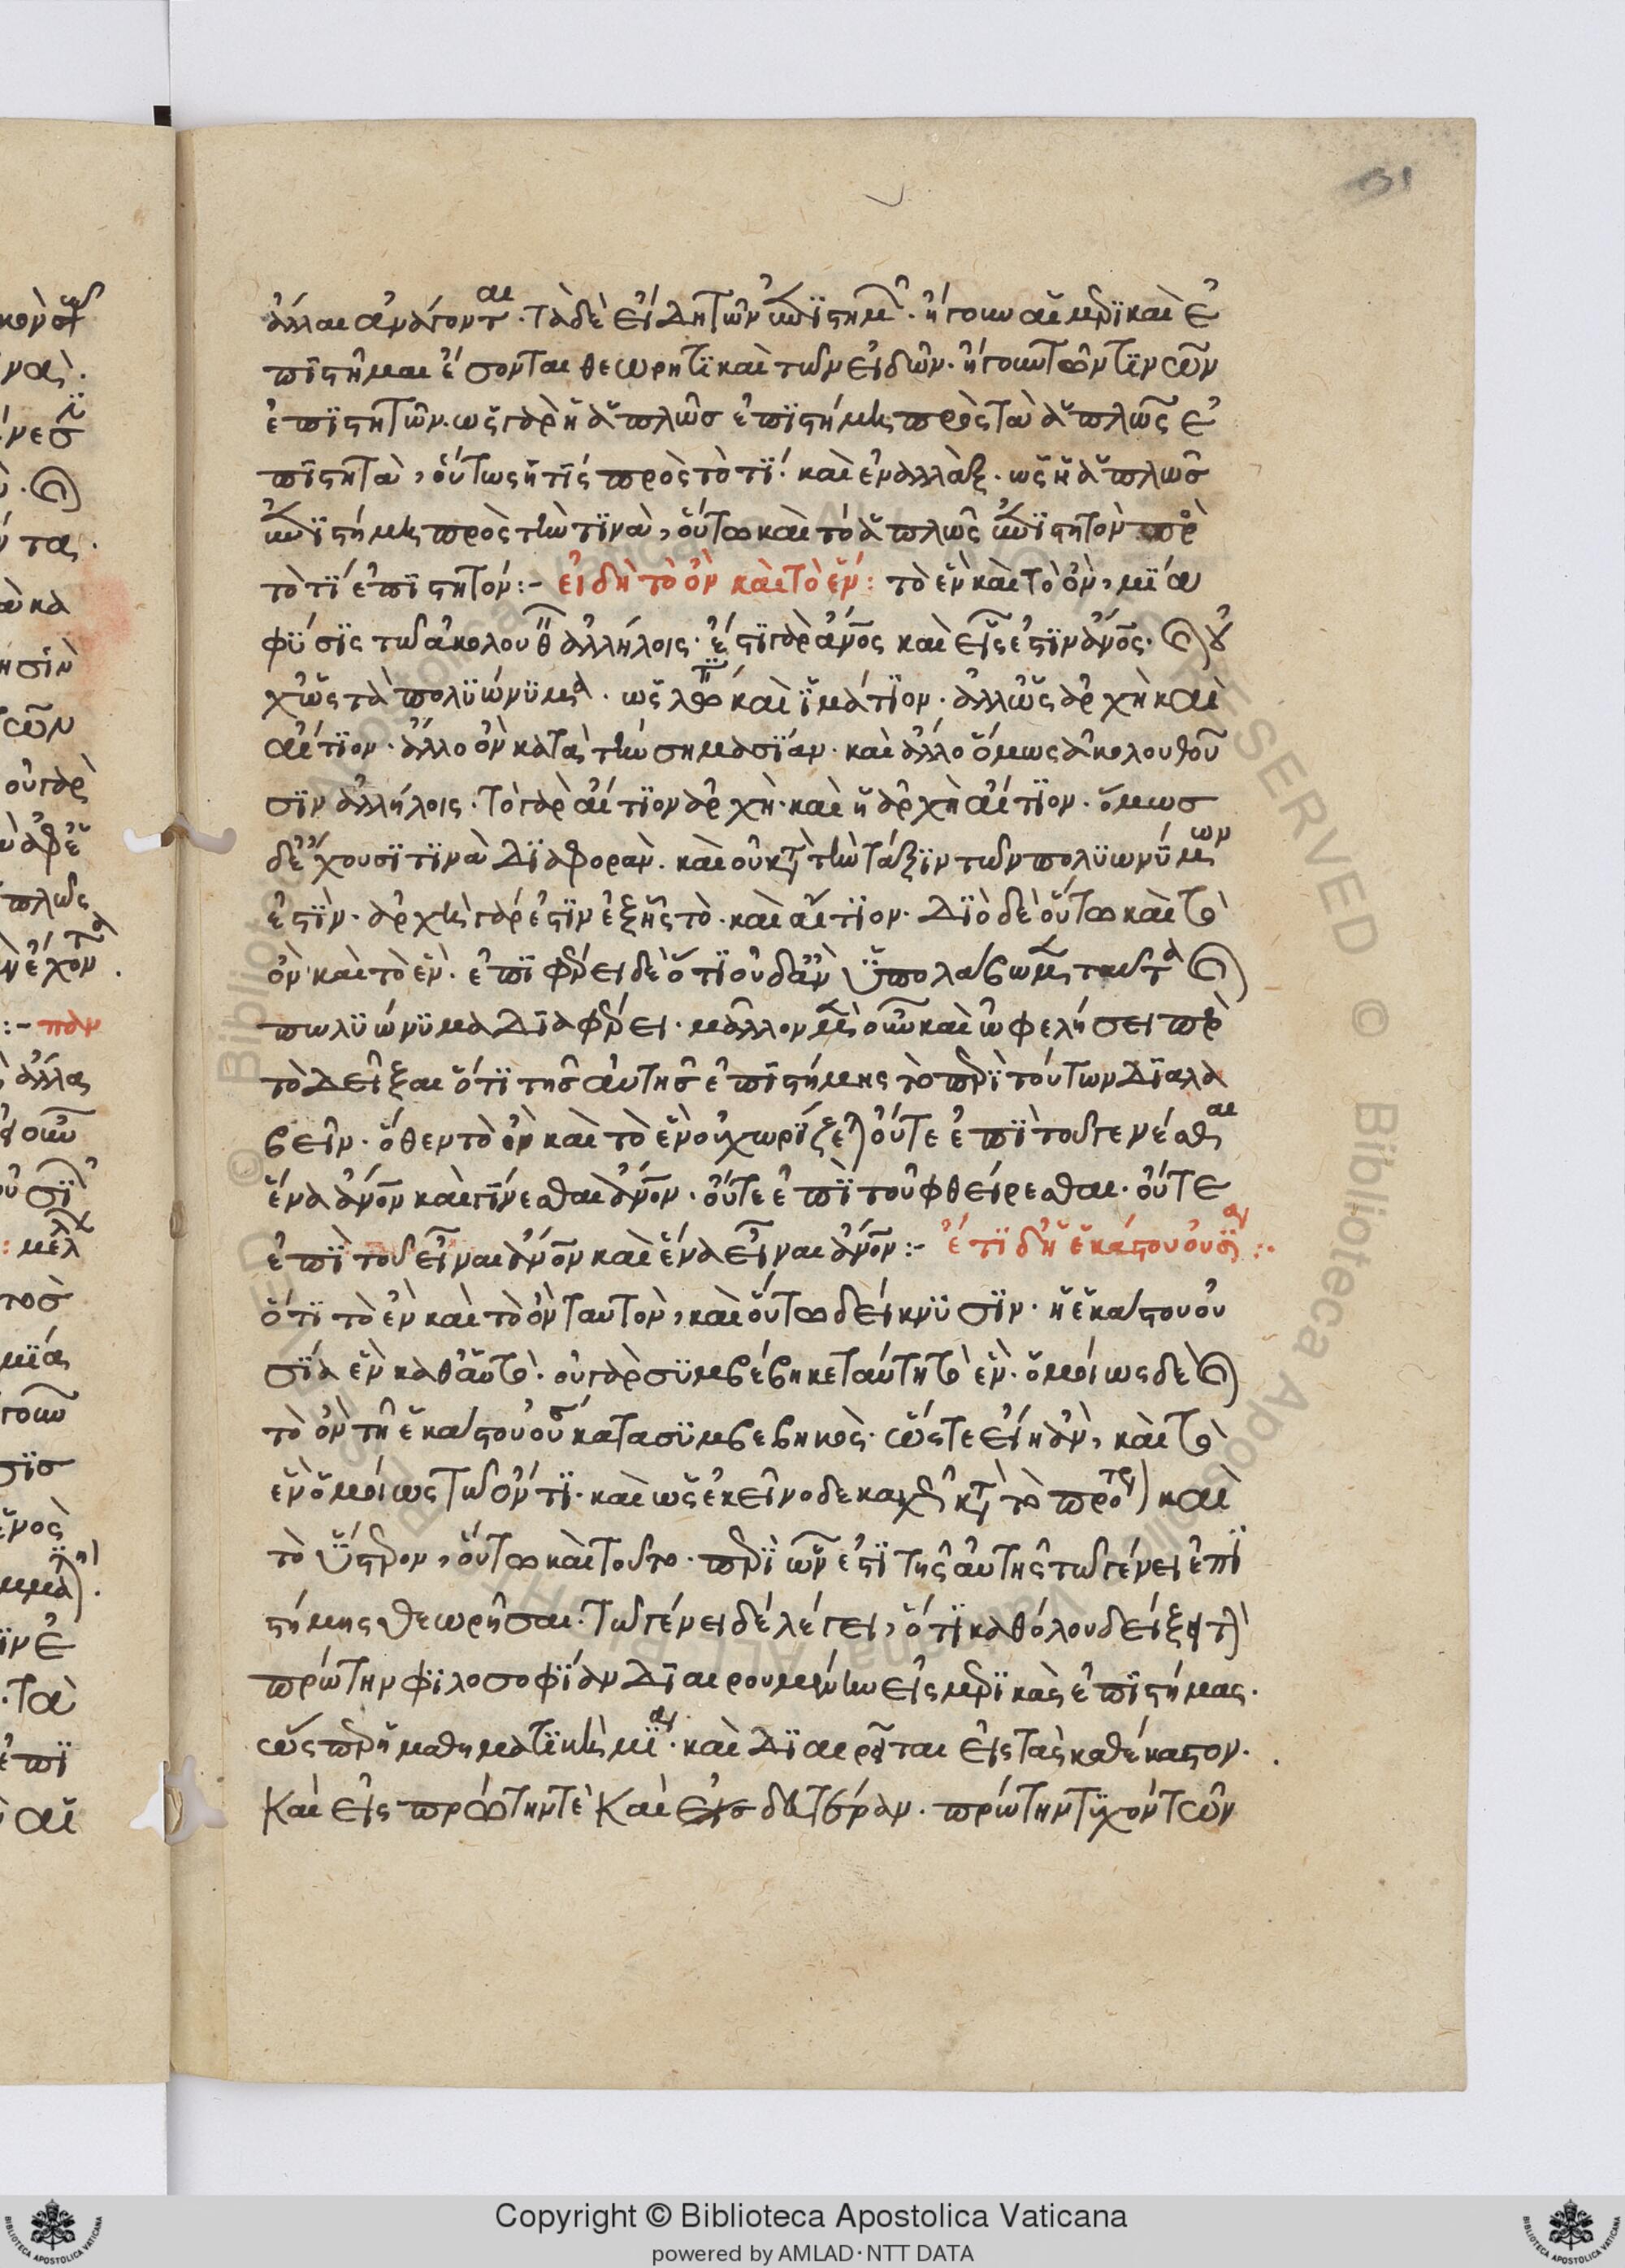 31
ἄλλαι ἀνάγονται. τὰ δὲ εἴδη τῶν ἐπϊστημῶν. ἤγουν αἱ μερϊκαὶ ἐ
πϊστῆμαι ἔσονται θεωρητϊκαὶ τῶν εἰδῶν. ἤγουν τῶν τϊνῶν
ἐπϊστητῶν. ὡς γὰρ ἡ ἁπλῶς ἐπϊστήμη πρὸς τὰ ἁπλῶς ἐ
πϊστητὰ, οὕτως ἡ τὶς πρὸς τὸ τϊ. καὶ ἐναλλὰξ. ὡς ἡ ἁπλῶς
ἐπϊστήμη πρὸς τὴν τϊνὰ, οὕτω καὶ τὸ ἁπλῶς ἐπϊστητὸν πρὸς
τὸ τὶ ἐπϊστητόν:- εἰ δὴ τὸ ὂν καὶ τὸ ἕν: τὸ ἓν καὶ τὸ ὂν, μϊα
φϋσϊς τῶ ἀκολουθεῖν ἀλλήλοις. ἔστϊ γὰρ ἄνος καὶ εἷς ἐστϊν ἄνος. οὐ
χ ὡς τὰ πολϋώνϋμα. ὡς λώπιον καὶ ϊμάτϊον. ἀλλ ὡς ἀρχὴ καὶ
αἴτϊον. ἄλλο ὂν κατὰ τὴν σημασϊαν. καὶ ἄλλο ὅμως ἀκολουθοῦ
σϊν ἀλλήλοις. τὸ γὰρ αἴτϊον ἀρχὴ. καὶ ἡ ἀρχὴ αἴτϊον. ὅμως
δὲ ἔχουσϊ τϊνὰ δϊαφορὰν. καὶ οὐ κατὰ τὴν τάξϊν τῶν πολϋωνϋμων
ἐστϊν. ἀρχῆς γάρ ἐστϊν ἑξῆς τὸ. καὶ αἴτϊον. δϊὸ δὲ οὕτω καὶ τὸ
ὂν καὶ τὸ ἓν. ἐπϊφέρει δὲ ὅτϊ οὐδ ἂν ὑπολάβωμεν ταῦτα
πωλϋώνϋμα δϊαφέρει. μᾶλλον μὲν οὖν καὶ ὠφελήσει πρὸς
τὸ δεῖξαι ὅτϊ τῆς αὐτῆς ἐπϊστήμης τὸ περϊ τούτων δϊαλα
βεῖν. ὅθεν τὸ ὂν καὶ τὸ ἓν οὐ χωρϊζεται οὔτε ἐπϊ τοῦ γενέσθαι
ἕνα ἄνον καὶ γϊνεσθαι ἄνον. οὔτε ἐπϊ τοῦ φθείρεσθαι. οὔτε
ἐπϊ τοῦ εἶναι ἄνον καὶ ἕνα εἶναι ἄνον:- ἔτϊ δὴ ἑκάστου οὐσϊα:.
ὅτϊ τὸ ἓν καὶ τὸ ὂν ταυτὸν, καὶ οὕτω δείκνϋσϊν. ἡ ἑκάστου οὐ
σϊα ἓν καθ αὑτὸ. οὐ γὰρ σϋμβέβηκε ταύτη τὸ ἓν. ὁμοίως δὲ
τὸ ὂν τῆ ἑκάστου οὐσία κατα σϋμβεβηκὸς. ὥστε εἴη ἂν, καὶ τὸ
ἓν ὁμοίως τῶ ὄντϊ. καὶ ὡς ἐκεῖνο δεκαχῆ κατὰ τὸ πρότερον καὶ
τὸ ὕστερον, οὕτω καὶ τοῦτο. περϊ ὧν ἐστϊ τῆς αὐτῆς τῶ γένει ἐπϊ
στήμης θεωρῆσαι. τῶ γένει δὲ λέγει, ὅτϊ καθόλου δείξει τὴν
πρώτην φϊλοσοφϊαν δϊαιρουμένην εἰς μερϊκὰς ἐπϊστήμας.
ὥσπερ ἡ μαθηματϊκὴ μϊα. καὶ δϊαιρεῖται εἰς τὰς καθέκαστον.
Καὶ εἰς πρώτην τὲ Καὶ εἰς δευτέραν. πρώτην τϋχὸν τῶν
Copyright © Biblioteca Apostolica Vaticana
powered by AMLAD·NTT DATA